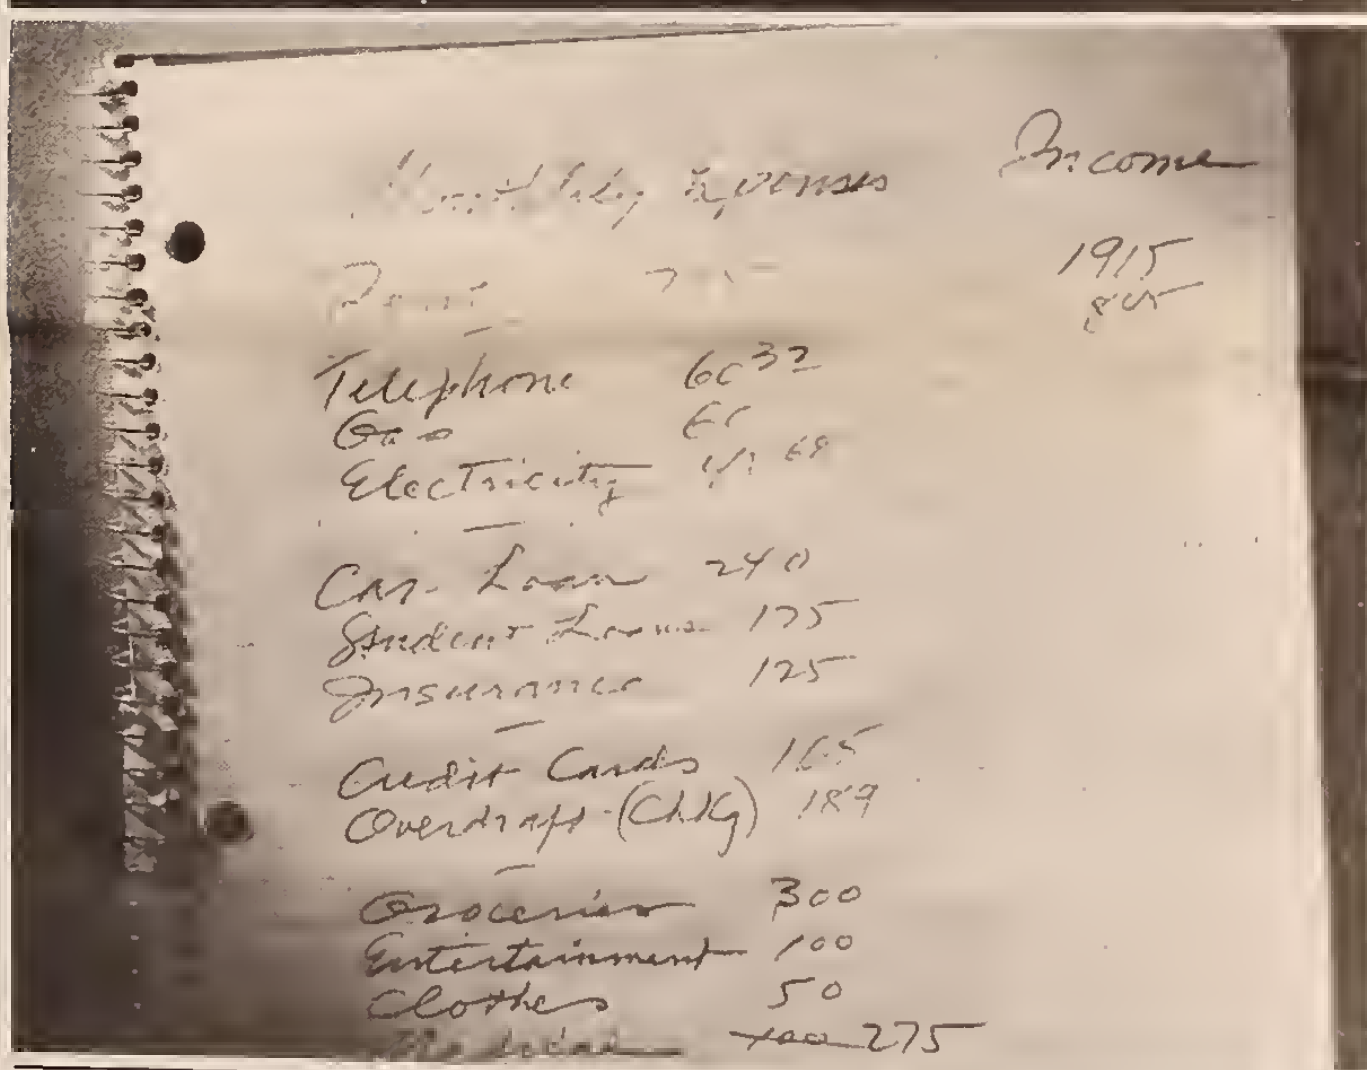 Monthly Expenses Income
Rent 1915
Telephone 60 32
Gas
Electricity
Car Loan 240
Student Loans 175
Insurance 125
Credit Cards
Overdraft (Chkg) 189
Groceries 300
Entertainment 100
Clothes 50
Medical 275